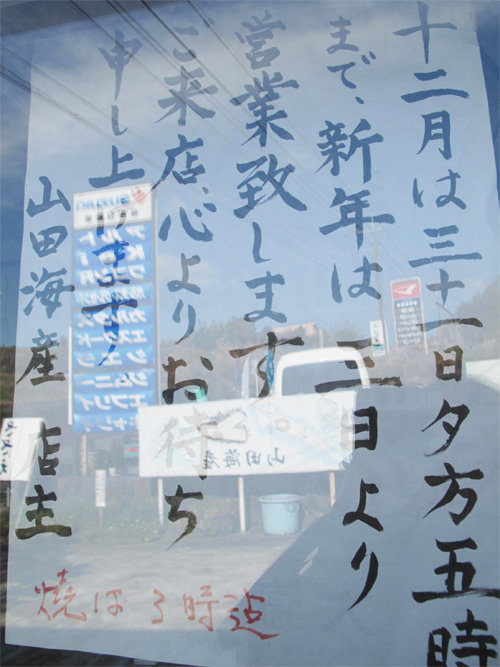 十二月は三十一日夕方五時
まで、新年は三日より
営業致します。
ご来店、心よりお待ち
申し上げます。
山田海産 店主
焼は3時迄
SUZUKI
山田海産